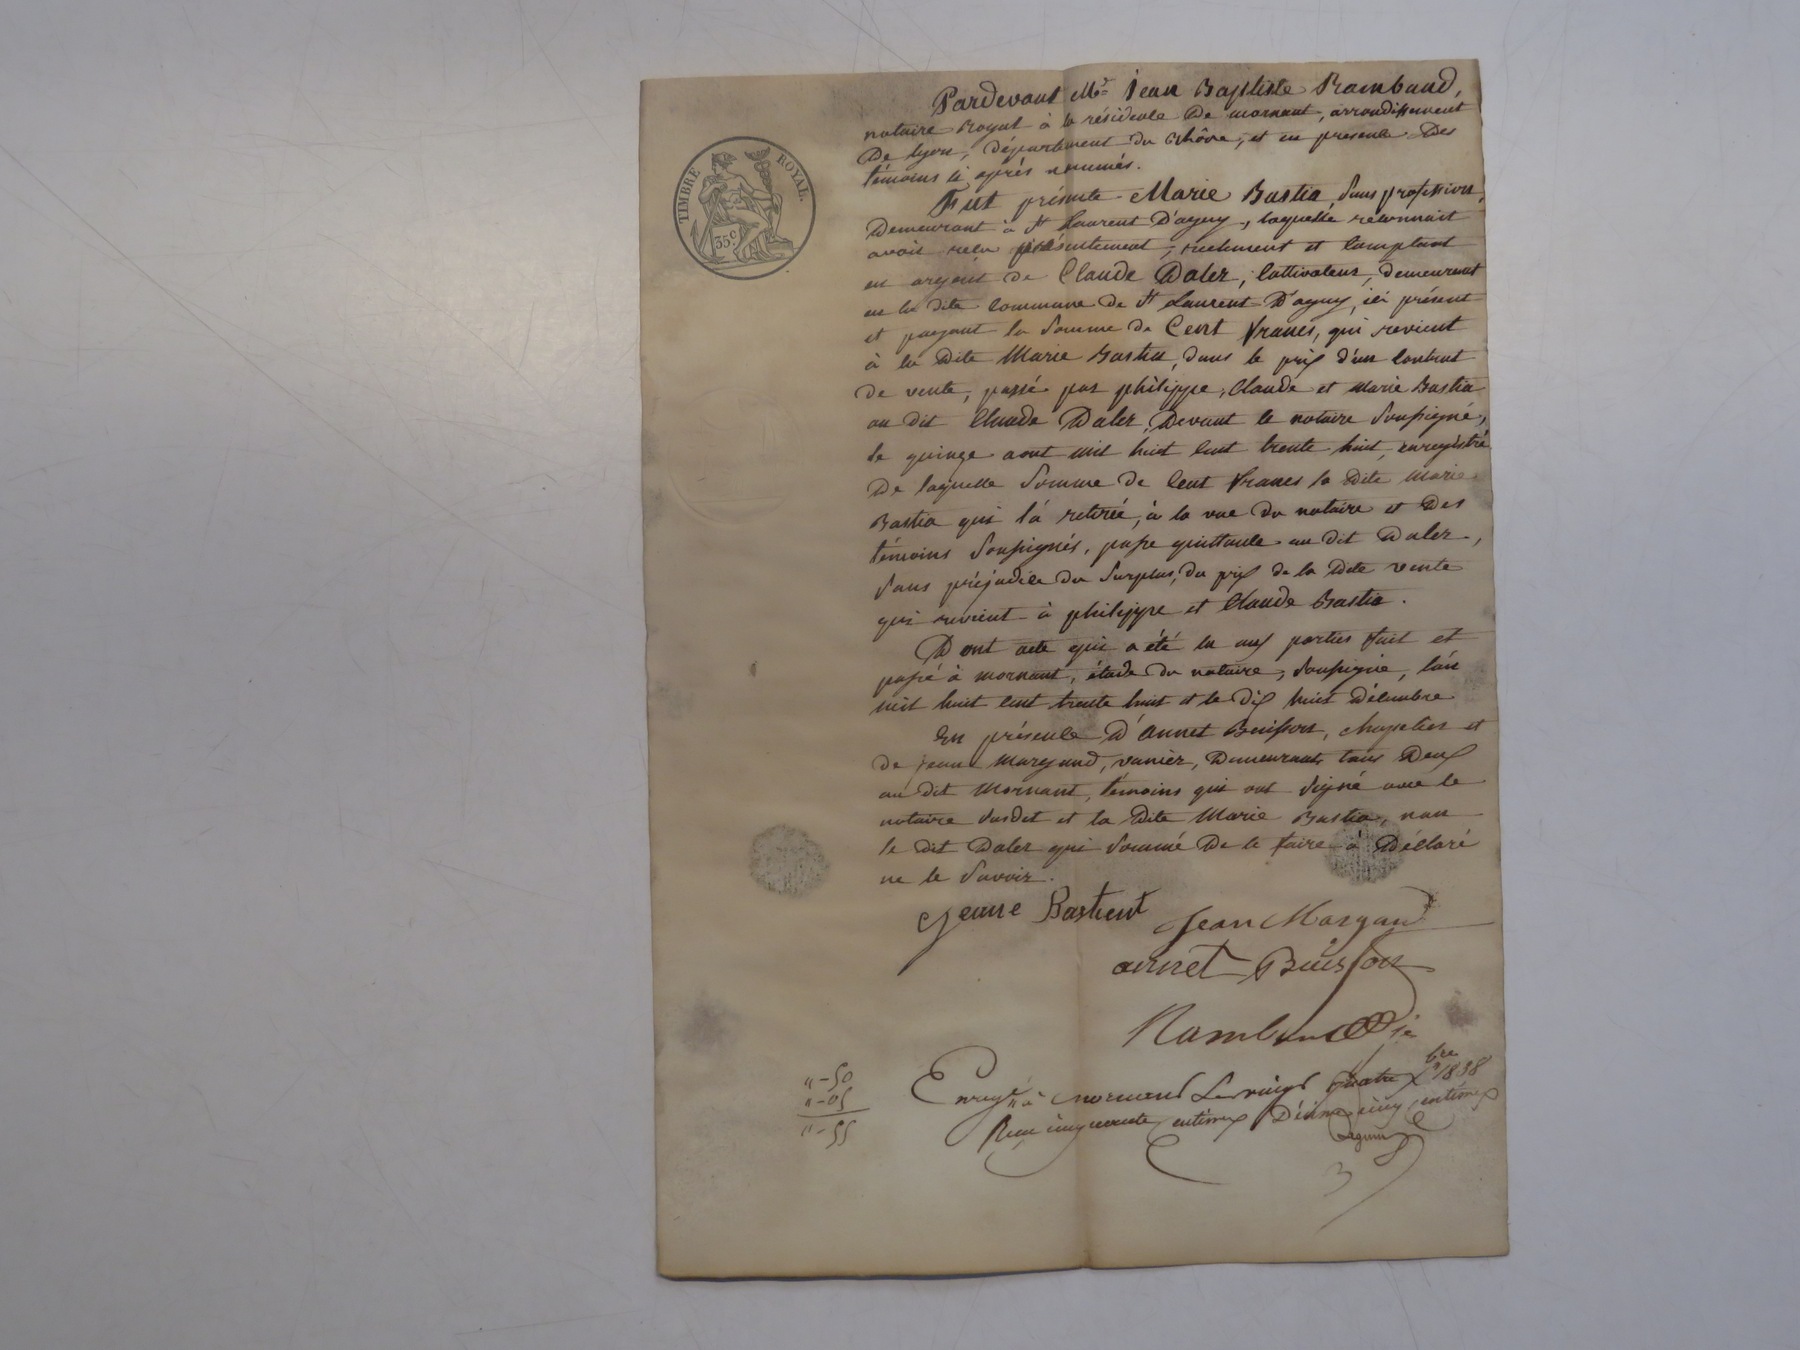 Pardevant Me Jean Baptiste Rambaud,
notaire Royal à la résidence De mornant, arrondissement
De lyon, Département du Rhône, et en presence Des
témoins ci après nommés.
Fut présente Marie Bastia, sans profession,
Demeurant à St Laurent D'agny, laquelle reconnait
avoir reçu présentement, réellement et Comptant
en argent de Claude Daler, Cultivateur, demeurant
en la dite Commune de St Laurent D'agny, ici présent
et payant la Somme de Cent francs, qui revient
à la Dite Marie Bastia, dans le prix d'un Contrat
de vente, passé par philippe, Claude et Marie Bastia
au dit Claude Daler, Devant le notaire Soussigné,
le quinze aout mil huit cent trente huit, enregistré
De laquelle Somme de Cent francs la Dite Marie
Bastia qui l'a retirée, à la vue du notaire et Des
témoins Soussignés, passe quittance au dit Daler,
Sans préjudice du Surplus, du prix de la Dite vente
qui revient à philippe et Claude Bastia.
Dont acte qui a été lu aux parties fait et
passé à Mornant, étude du notaire, Soussigné, l'an
mil huit cent trente huit et le Dix huit Décembre
En présence D'annet Buisson, chapelier et
de jean Margand, vanier, Demeurant tous Deux
au dit Mornant, témoins qui ont Signé avec le
notaire Susdit et la Dite Marie Bastia, non
le dit Daler qui Sommé De le faire à Déclaré
ne le Savoir.
Jeane Bastient
Jean Margand
annet Buisson
Rambaud
Enregé à mornant Le vingt quatre Xbre 1838
Reçu cinquante centimes Décime cinq centimes
"-50
"-05
"-55
3
TIMBRE ROYAL.
35c